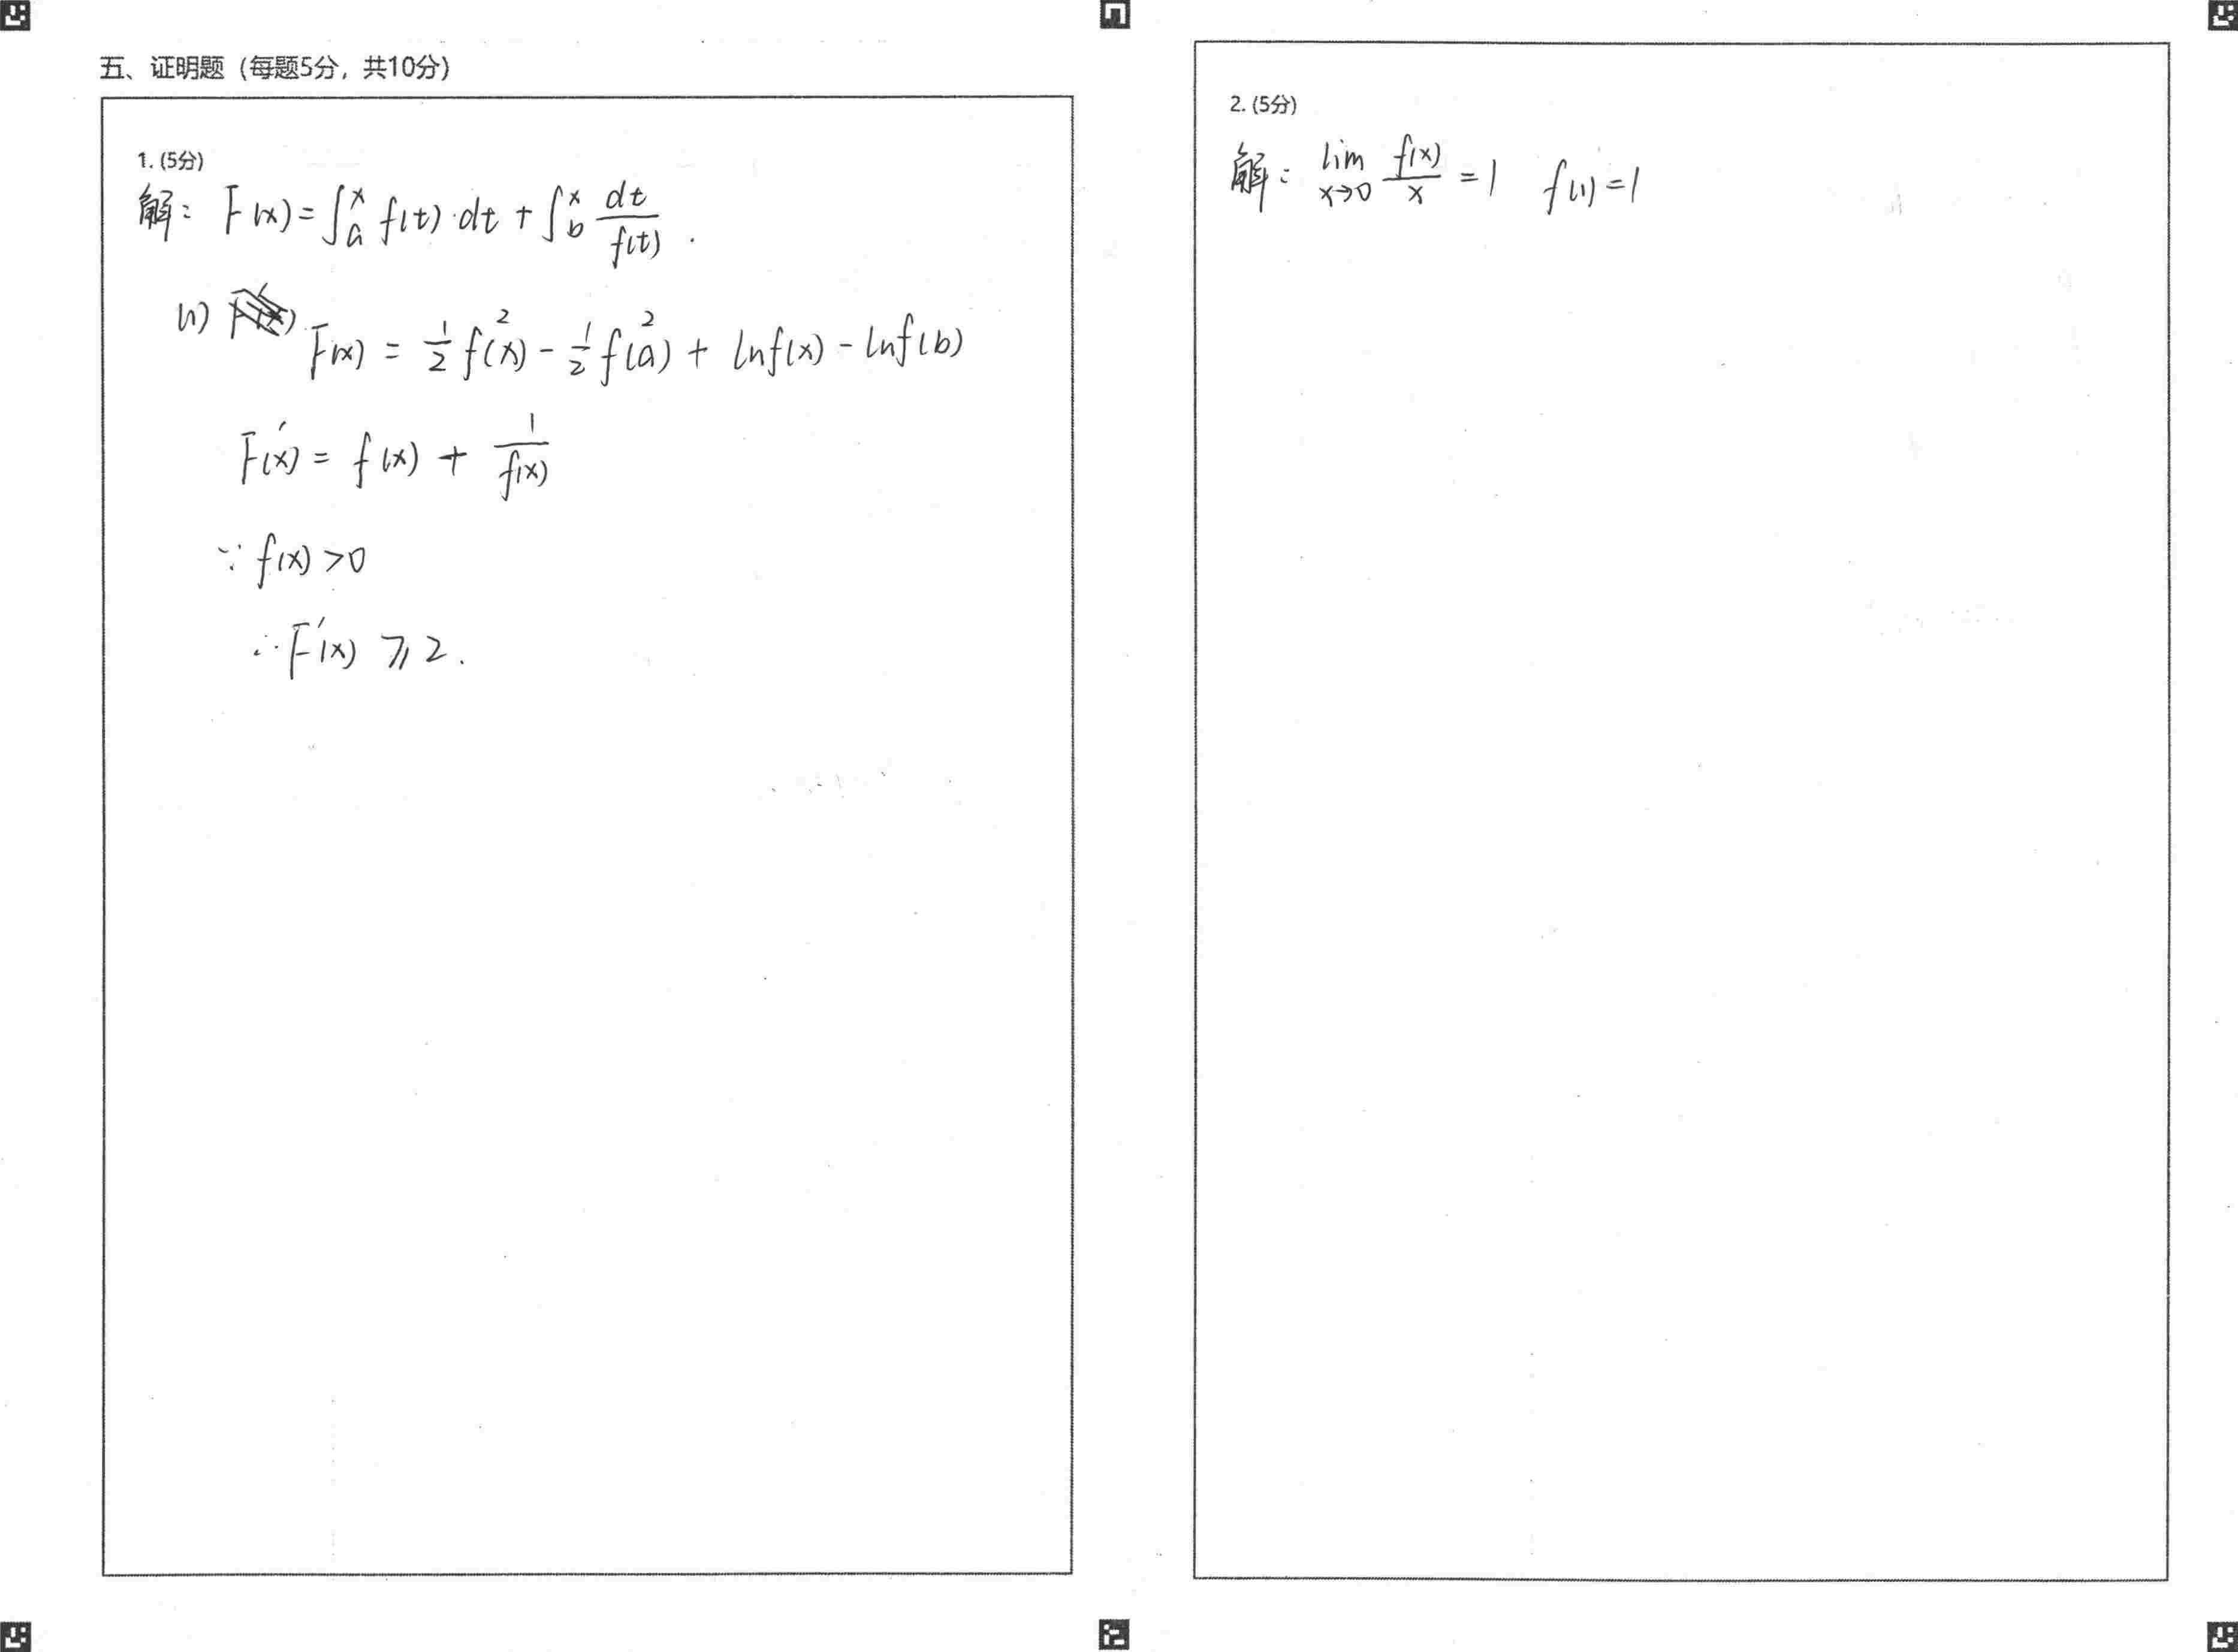 五、证明题（每题5分，共10分）
1. (5分)
解： F(x) = ∫_a^x f(t)·dt + ∫_b^x dt/f(t) .
(1) F(x) = 1/2 f(x)^2 - 1/2 f(a)^2 + lnf(x) - lnf(b)
F'(x) = f(x) + 1/f(x)
∵ f(x) >0
∴ F'(x) ⩾ 2 .
2. (5分)
解： lim_{x→0} f(x)/x = 1 f(1) = 1